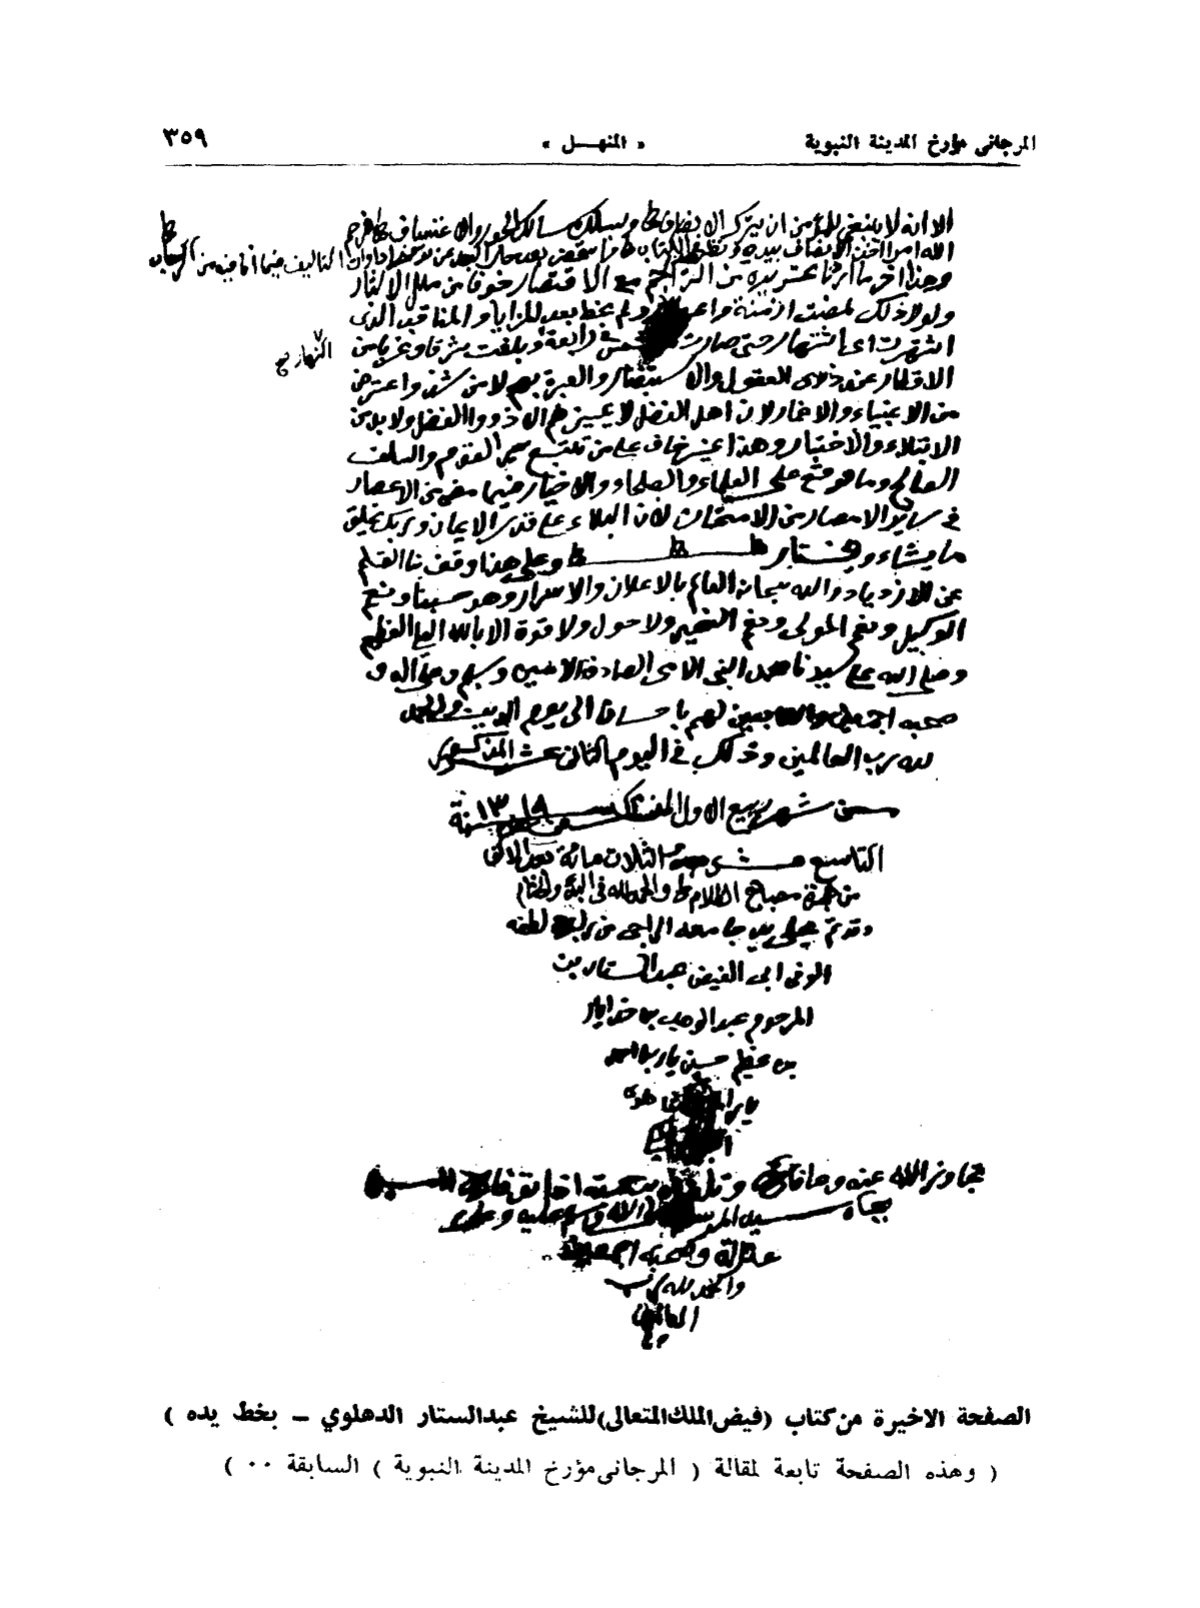 المرجاني مؤرخ المدينة النبوية « المنهـــل » ٣٥٩
الا انه لا ينبغي للمؤمن ان يترك الانصاف ويسلك مسالك الجور والاعتساف
الله امرا اخذ الانصاف بيده ونظر في الكتاب
وهذا اخر ما اردنا من التراجم مع الاقتصار خوفا من ملل الاكثار
ولولا ذلك لمضت ازمنة ولم يحط بعد المزايا والمناقب الذي
اشتهرت حتى صارت رابعة وبلغت شرقا وغربا من
النهار
الاقطار عند ذوي العقول والاستبصار والعبرة بهم لا من شذ واعترض
من الاغبياء والاغمار لان اهل الفضل لا يميزهم الا ذووا الفضل ولا بد من
الابتلاء والاختبار وهذا غير خاف على من تتبع سير القوم والسلف
الصالح وما وقع على العلماء والصلحاء والاخيار فيما مضى من الاعصار
في سائر الامصار من الامتحان لان البلاء على قدر الايمان وربك يخلق
ما يشاء ويختار وعلى هذا وقف بنا القلم
عن الازدياد والله سبحانه العالم بالاعلان والاسرار وهو حسبنا ونعم
الوكيل ونعم المولى ونعم النصير ولا حول ولا قوة الا بالله العلي العظيم
وصلى الله على سيدنا محمد النبي الامي الصادق الامين وسلم وعلى اله و
صحبه اجمعين والتابعين لهم باحسان الى يوم الدين والحمد
لله رب العالمين وذلك في اليوم الثاني عشر
من شهر ربيع الاول سنة ١٣١٩
التاسع عشر بعد الثلاث مائة بعد الالف
من هجرة مصباح الظلام والحمد لله في البدء والختام
وقد تم على يد جامعه الراجي من ربه لطفه
الوفي ابي الفيض عبد الستار بن
المرحوم عبد الوهاب بن خدايار
بن عظيم حسين يار بن احمد
يار
تجاوز الله عنه وعافاه
بجاه سيد المرسلين صلى الله وسلم عليه وعلى
وصحبه اجمعين
والحمد لله رب
العالمين
الصفحة الاخيرة من كتاب (فيض الملك المتعالى) للشيخ عبدالستار الدهلوي – بخط يده )
( وهذه الصفحة تابعة لمقالة ( المرجاني مؤرخ المدينة النبوية ) السابقة ٠٠ )